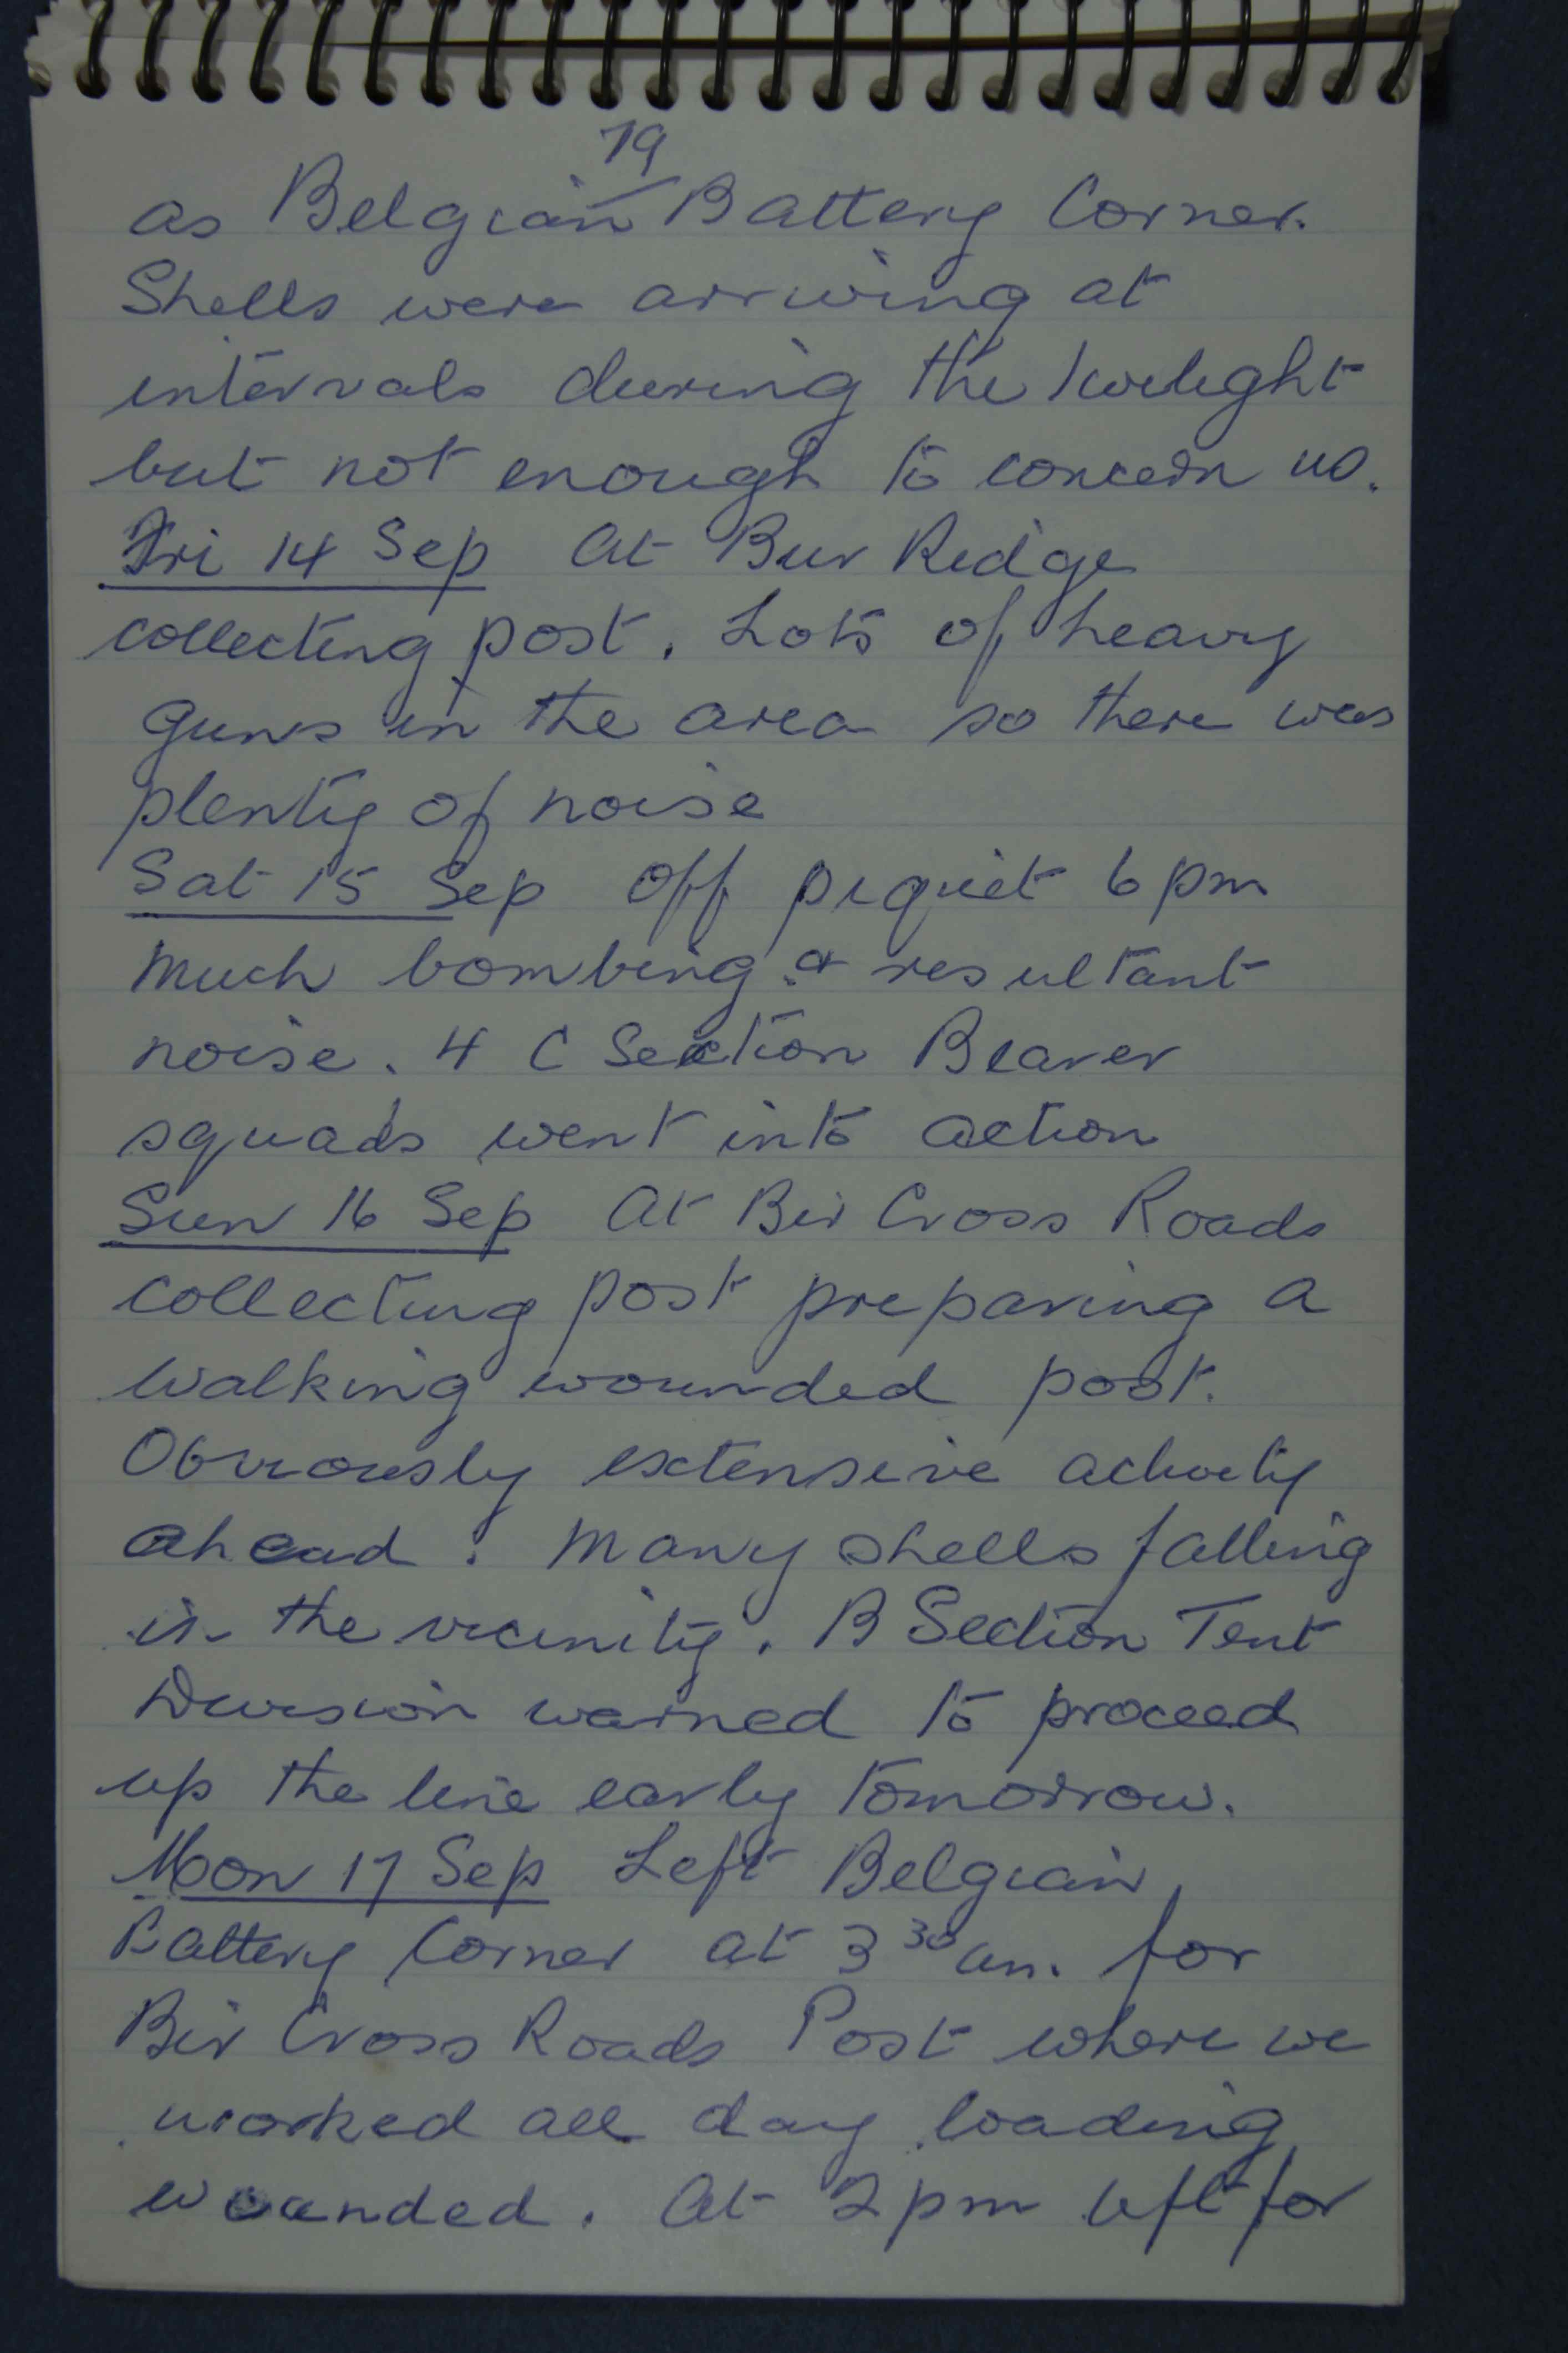 79
as Belgian Battery Corner.
Shells were arriving at
intervals during the twilight
but not enough to concern us.
Fri 14 Sep At Bur Ridge
collecting post. Lots of heavy
guns in the area so there was
plenty of noise
Sat 15 Sep Off piquet 6 pm
Much bombing & resultant
noise. 4 C Section Bearer
squads went into action
Sun 16 Sep At Bir Cross Roads
collecting post preparing a
walking wounded post.
Obviously extensive activity
ahead. Many shells falling
in the vicinity. B Section Tent
Division warned to proceed
up the line early tomorrow.
Mon 17 Sep Left Belgian
Battery Corner at 3 30 am. for
Bir Cross Roads Post where we
worked all day loading
wounded. At 2 pm left for